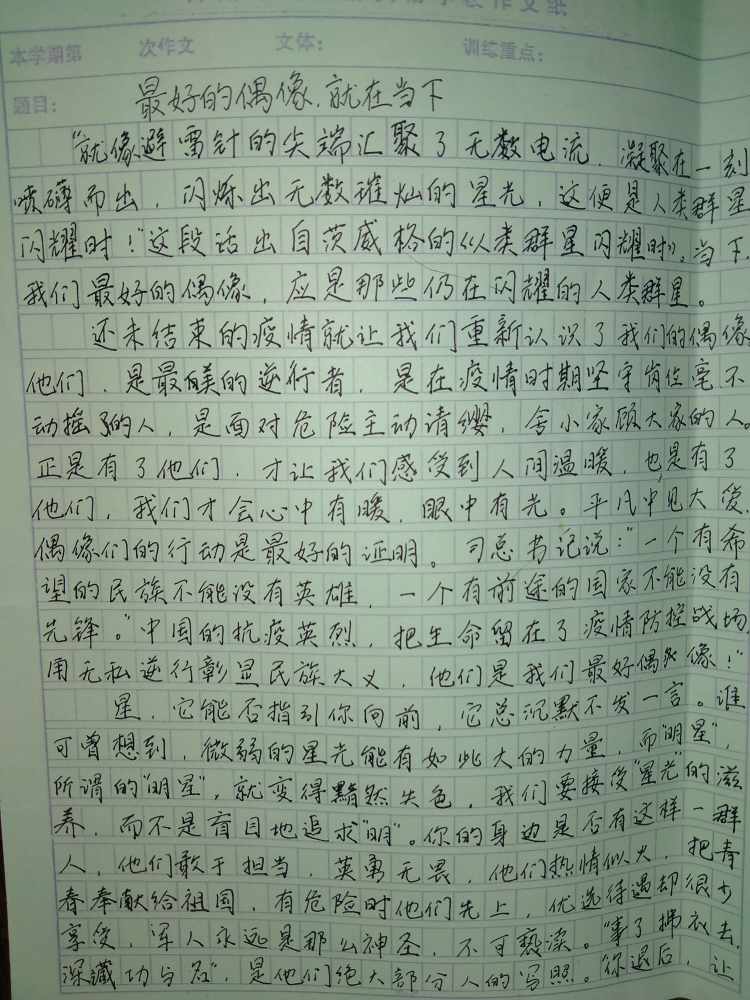 作文纸
本学期第 次作文 文体： 训练重点：
题目： 最好的偶像，就在当下
“就像避雷针的尖端汇聚了无数电流，凝聚在一刻
喷薄而出，闪烁出无数璀灿的星光，这便是人类群星
闪耀时！”这段话出自茨威格的《人类群星闪耀时》。当下，
我们最好的偶像，应是那些仍在闪耀的人类群星。
还未结束的疫情就让我们重新认识了我们的偶像
他们，是最美的逆行者，是在疫情时期坚守岗位毫不
动摇的人，是面对危险主动请缨，舍小家顾大家的人。
正是有了他们，才让我们感受到人间温暖，也是有了
他们，我们才会心中有暖，眼中有光。平凡中见大爱，
偶像们的行动是最好的证明。习总书记说：“一个有希
望的民族不能没有英雄，一个有前途的国家不能没有
先锋。”中国的抗疫英烈，把生命留在了疫情防控战场，
用无私逆行彰显民族大义，他们是我们最好偶像！”
星，它能否指引你向前，它总沉默不发一言。谁
可曾想到，微弱的星光能有如此大的力量，而“明星”，
所谓的“明星”，就变得黯然失色，我们要接受“星光”的滋
养，而不是盲目地追求“明”。你的身边是否有这样一群
人，他们敢于担当，英勇无畏，他们热情似火，把青
春奉献给祖国，有危险时他们先上，优选待遇却很少
享受，军人永远是那么神圣，不可亵渎。“事了拂衣去，
深藏功与名”，是他们绝大部分人的写照。你退后，让